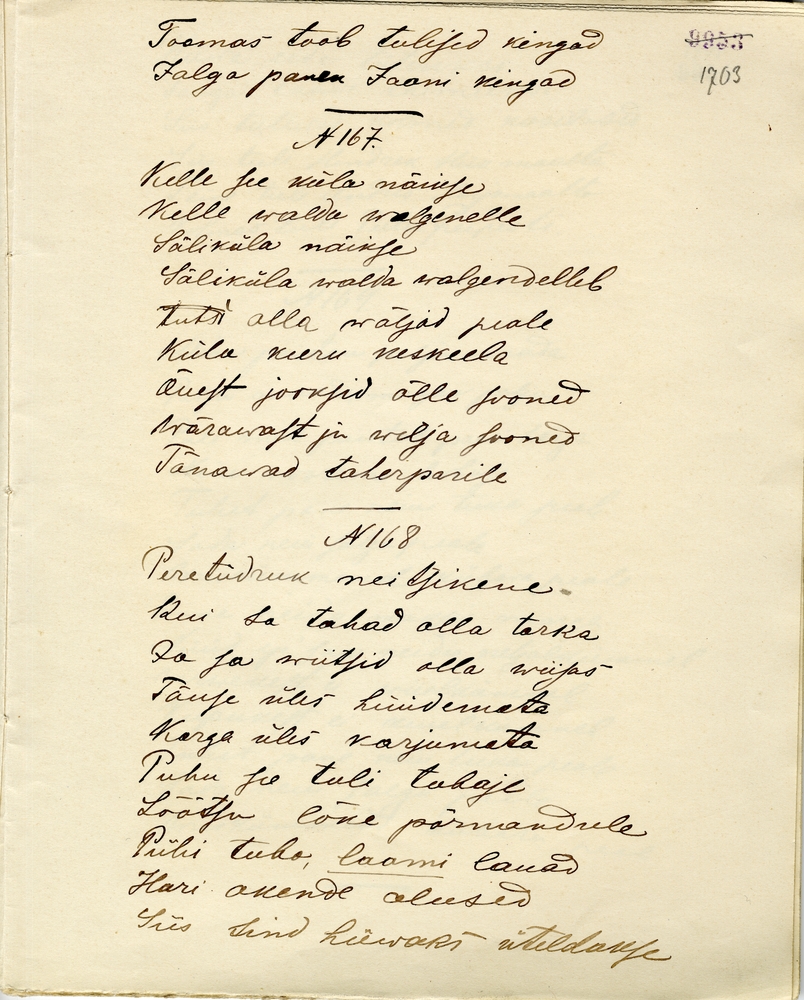 Toomas toob tulised kingad
9953
Jalga panen Jaani kingad
1703
N 167.
Kelle see küla näikse
Kelle walda walgenelle
Säliküla näikse
Säliküla walda walgendelleb
tutti alla wäljad peale
Küla keeru keskeela
Õuest jooksid õlle sooned
Wärawast ju welja sooned
Tänawad taherparile
N 168
Peretüdruk neitsikene
Kui sa tahad olla tarka
Ja sa wiitsid olla wiisas
Tõuse üles hüüdemata
Karga üles karjumata
Puhu see tuli tubaje
Lõõtsu lõke põrmandule
Pühi tuba, laami lauad
Hari akende alused
Siis sind hüwaks üteldakse